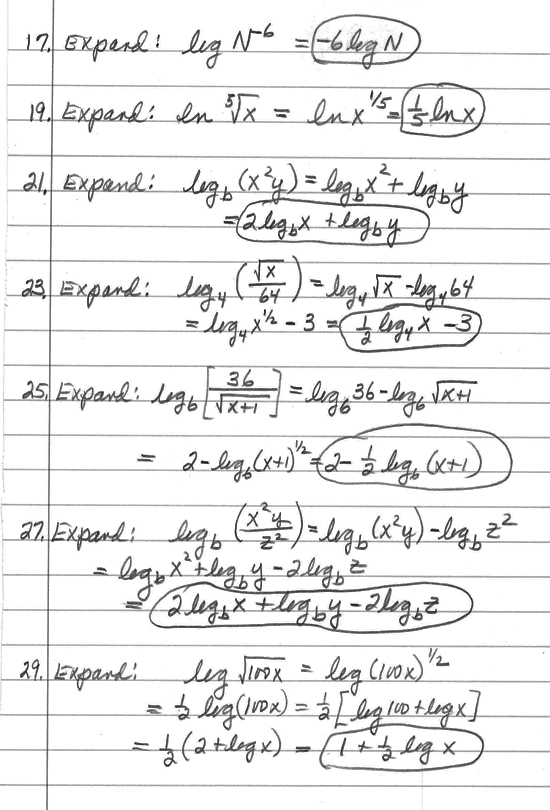 17. Expand: log N⁻⁶ = -6 log N
19. Expand: ln ⁵√x = ln x^(1/5) = 1/5 ln x
21. Expand: log_b (x²y) = log_b x² + log_b y
= 2 log_b x + log_b y
23. Expand: log₄ (√x/64) = log₄ √x - log₄ 64
= log₄ x^(1/2) - 3 = 1/2 log₄ x - 3
25. Expand: log₆ [36/√(x+1)] = log₆ 36 - log₆ √(x+1)
= 2 - log₆ (x+1)^(1/2) = 2 - 1/2 log₆ (x+1)
27. Expand: log_b (x²y/z²) = log_b (x²y) - log_b z²
= log_b x² + log_b y - 2 log_b z
= 2 log_b x + log_b y - 2 log_b z
29. Expand: log √(100x) = log (100x)^(1/2)
= 1/2 log (100x) = 1/2 [log 100 + log x]
= 1/2 (2 + log x) = 1 + 1/2 log x